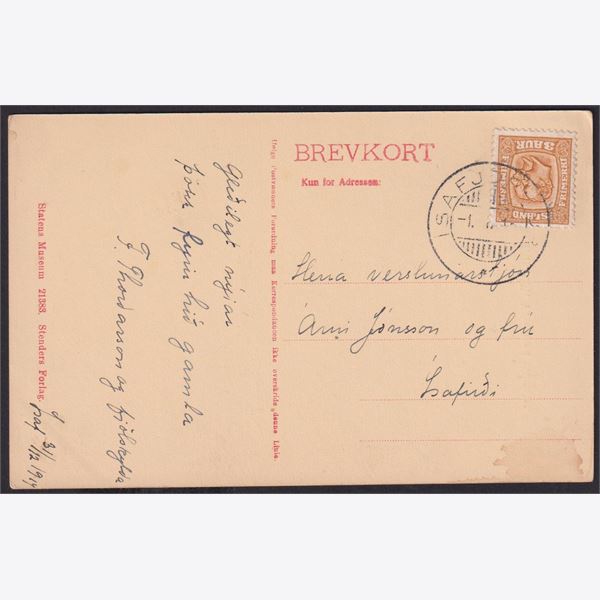 Gleðilegt nýjár
þökk fyrir hið gamla
F. Thordarson og fjölskylda
31/12 1914
Statens Museum 21383. Stenders Forlag.
Ifølge Postvæsnets Forordning maa Korrespondancen ikke overskride denne Linie.
BREVKORT
Kun for Adressen:
3 AUR
FRIMERKI
ISLAND
ISAFJ
Herra verslunarstjóri
Árni Jónsson og frú
Ísafirði